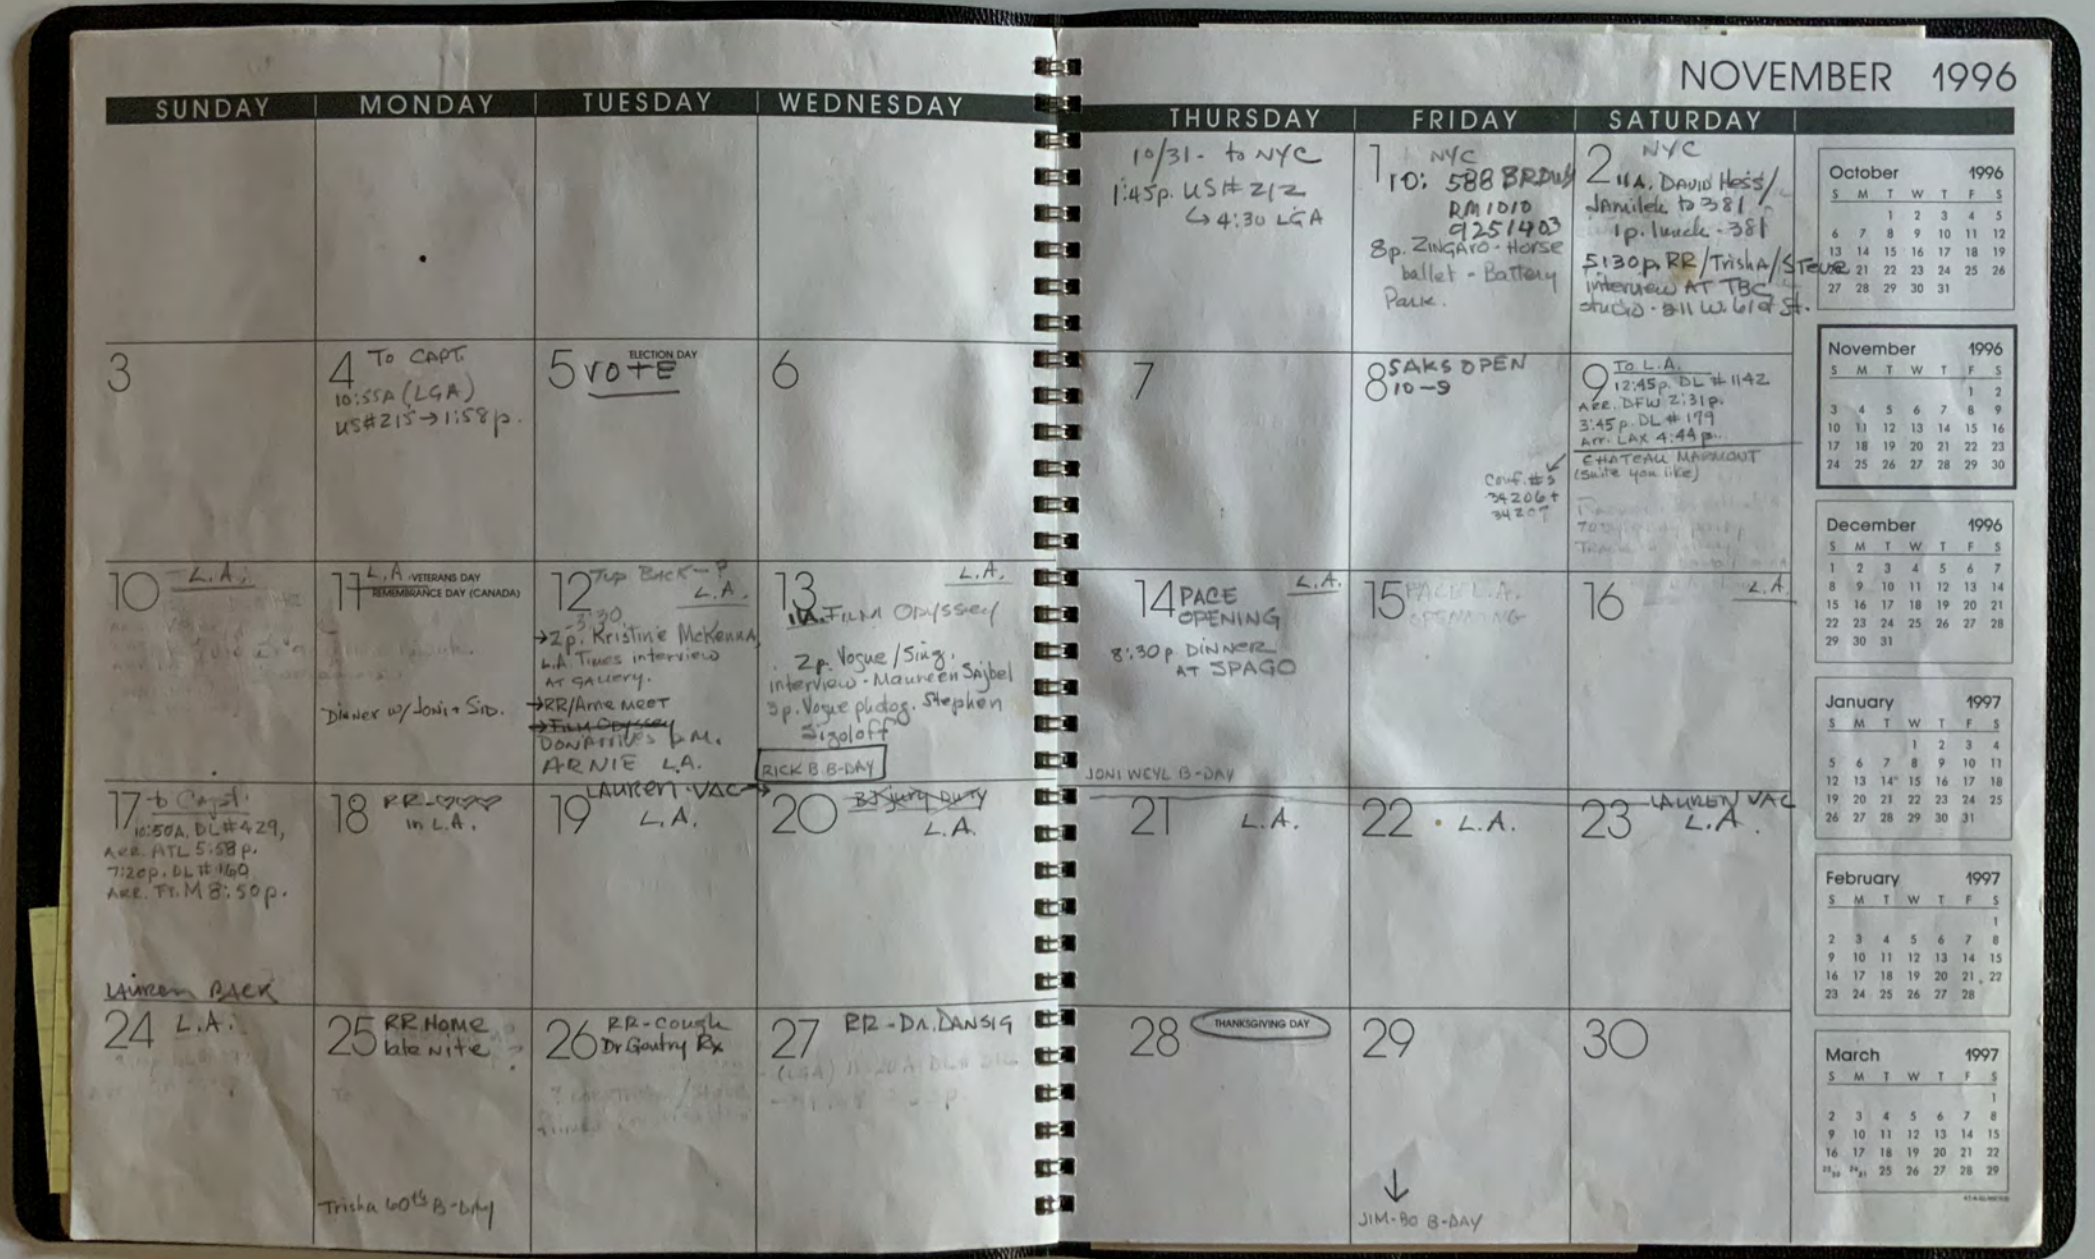 NOVEMBER 1996
SUNDAY | MONDAY | TUESDAY | WEDNESDAY
THURSDAY | FRIDAY | SATURDAY
10/31 - to NYC
1:45p. US# 212
↳ 4:30 LGA
1 NYC
10: 588 BRDWY
RM 1010
9251403
8p. ZINGARO - Horse
ballet - Battery
Park.
2 NYC
11A. DAVID Hess/
to 381
1p. lunch - 381
5:30p. RR/TrishA/Steve
interview AT TBC
studio - 211 W. 61st St.
3
4 TO CAPT.
10:55A (LGA)
US#215→1:58p.
5 ELECTION DAY
VOTE
6
7
8 SAKS OPEN
10-9
9 To L.A.
12:45p. DL #1142
ARR. DFW 2:31p.
3:45p. DL #179
Arr. LAX 4:44p.
CHATEAU MARMONT
(suite you like)
Conf. #s
34206 +
34207
10 L.A.
11 L.A. VETERANS DAY
REMEMBRANCE DAY (CANADA)
Dinner w/ Joni + Sid.
12 BACK-?
L.A.
3:30
→2p. Kristine McKenna,
L.A. Times interview
AT GALLERY.
→RR/Arne MEET
→Film Odyssey
P.M.
ARNIE L.A.
13 L.A.
11A. FILM ODYSSEY
2p. Vogue/Sing.
interview - Maureen Sajbel
3p. Vogue photog. Stephen
Sigoloff
RICK B. B-DAY
14 L.A.
PACE
OPENING
8:30p DINNER
AT SPAGO
JONI WEYL B-DAY
15 PACE L.A.
OPENING
16 L.A.
17 to Capt.
10:50A. DL#429,
ARR. ATL 5:58p.
7:20p. DL #160
ARR. FT. M 8:50p.
18 RR-♡♡♡
in L.A.
LAUREN VAC→
19 L.A.
20 BJ jury DUTY
L.A.
21 L.A.
22 L.A.
23 LAUREN VAC
L.A.
LAUREN BACK
24 L.A.
25 RR HOME
late NITE ?
Trisha 60th B-DAY
26 RR-cough
Dr Gautry Rx
27 RR - DR. DANSIG
(LGA) 11:20A DL#
28 THANKSGIVING DAY
29
↓
JIM-BO B-DAY
30
October 1996
S M T W T F S
1 2 3 4 5
6 7 8 9 10 11 12
13 14 15 16 17 18 19
21 22 23 24 25 26
27 28 29 30 31
November 1996
S M T W T F S
1 2
3 4 5 6 7 8 9
10 11 12 13 14 15 16
17 18 19 20 21 22 23
24 25 26 27 28 29 30
December 1996
S M T W T F S
1 2 3 4 5 6 7
8 9 10 11 12 13 14
15 16 17 18 19 20 21
22 23 24 25 26 27 28
29 30 31
January 1997
S M T W T F S
1 2 3 4
5 6 7 8 9 10 11
12 13 14 15 16 17 18
19 20 21 22 23 24 25
26 27 28 29 30 31
February 1997
S M T W T F S
1
2 3 4 5 6 7 8
9 10 11 12 13 14 15
16 17 18 19 20 21 22
23 24 25 26 27 28
March 1997
S M T W T F S
1
2 3 4 5 6 7 8
9 10 11 12 13 14 15
16 17 18 19 20 21 22
23/30 24/31 25 26 27 28 29